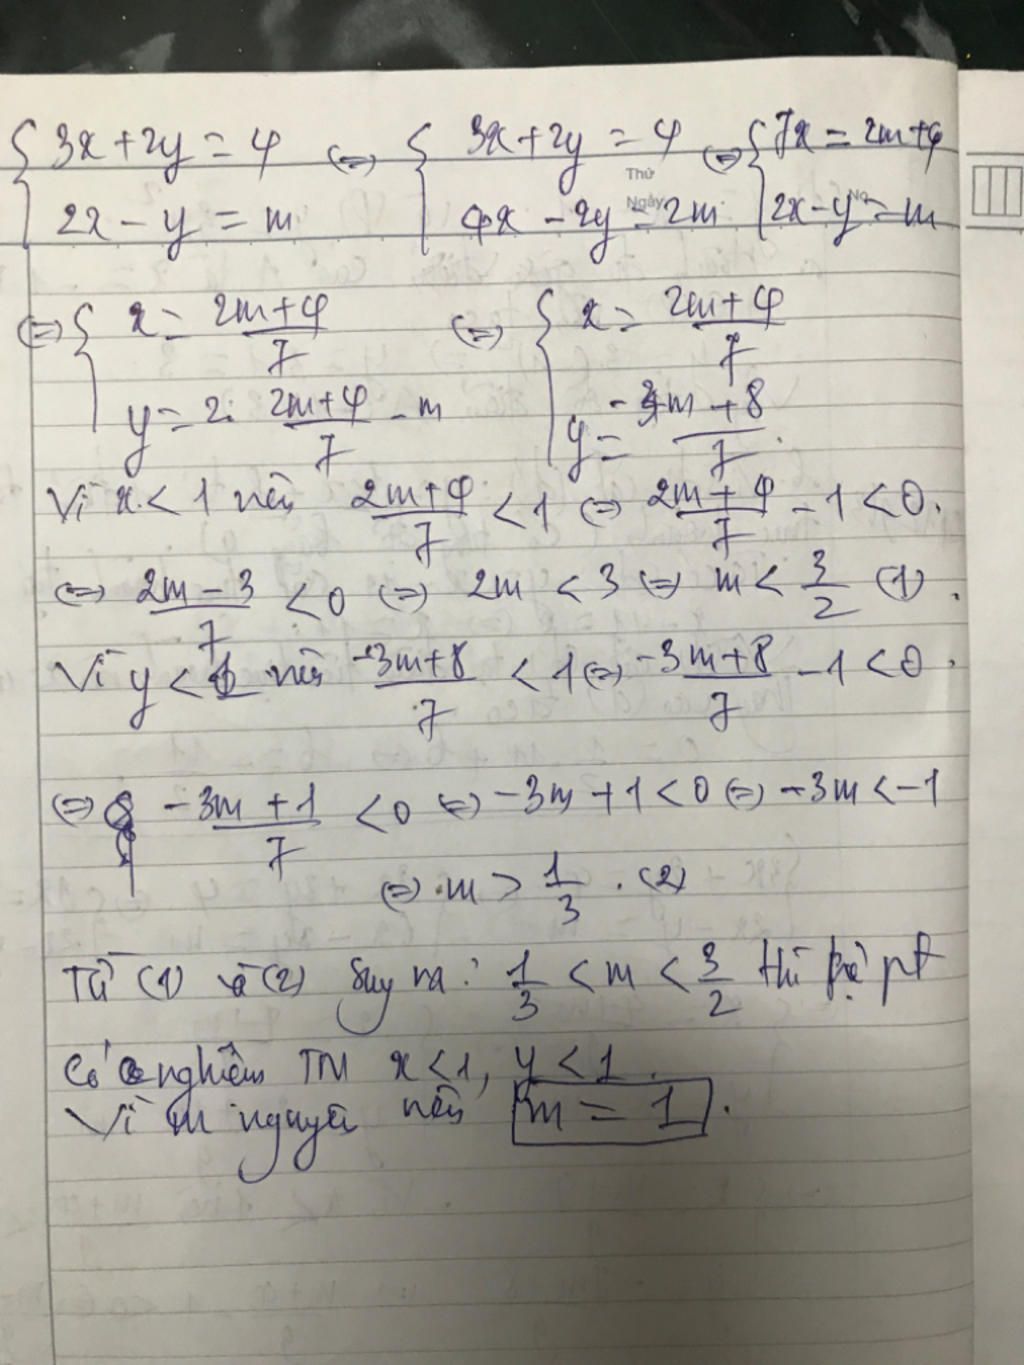 { 3x + 2y = 4 (=) { 3x + 2y = 4 (=) { 7x = 2m+4
Thứ
2x - y = m 4x - 2y = 2m 2x - y = m
Ngày No
(=) { x = 2m+4/7 (=) { x = 2m+4/7
y = 2. 2m+4/7 - m y = -3m+8/7.
Vì x < 1 nên 2m+4/7 < 1 (=) 2m+4/7 - 1 < 0.
(=) 2m-3/7 < 0 (=) 2m < 3 (=) m < 3/2 (1).
Vì y < 1 nên -3m+8/7 < 1 (=) -3m+8/7 - 1 < 0.
(=) -3m+1/7 < 0 (=) -3m + 1 < 0 (=) -3m < -1
(=) m > 1/3. (2)
Từ (1) và (2) suy ra: 1/3 < m < 3/2 thì hệ pt
có nghiệm TM x < 1, y < 1.
Vì m nguyên nên m = 1.